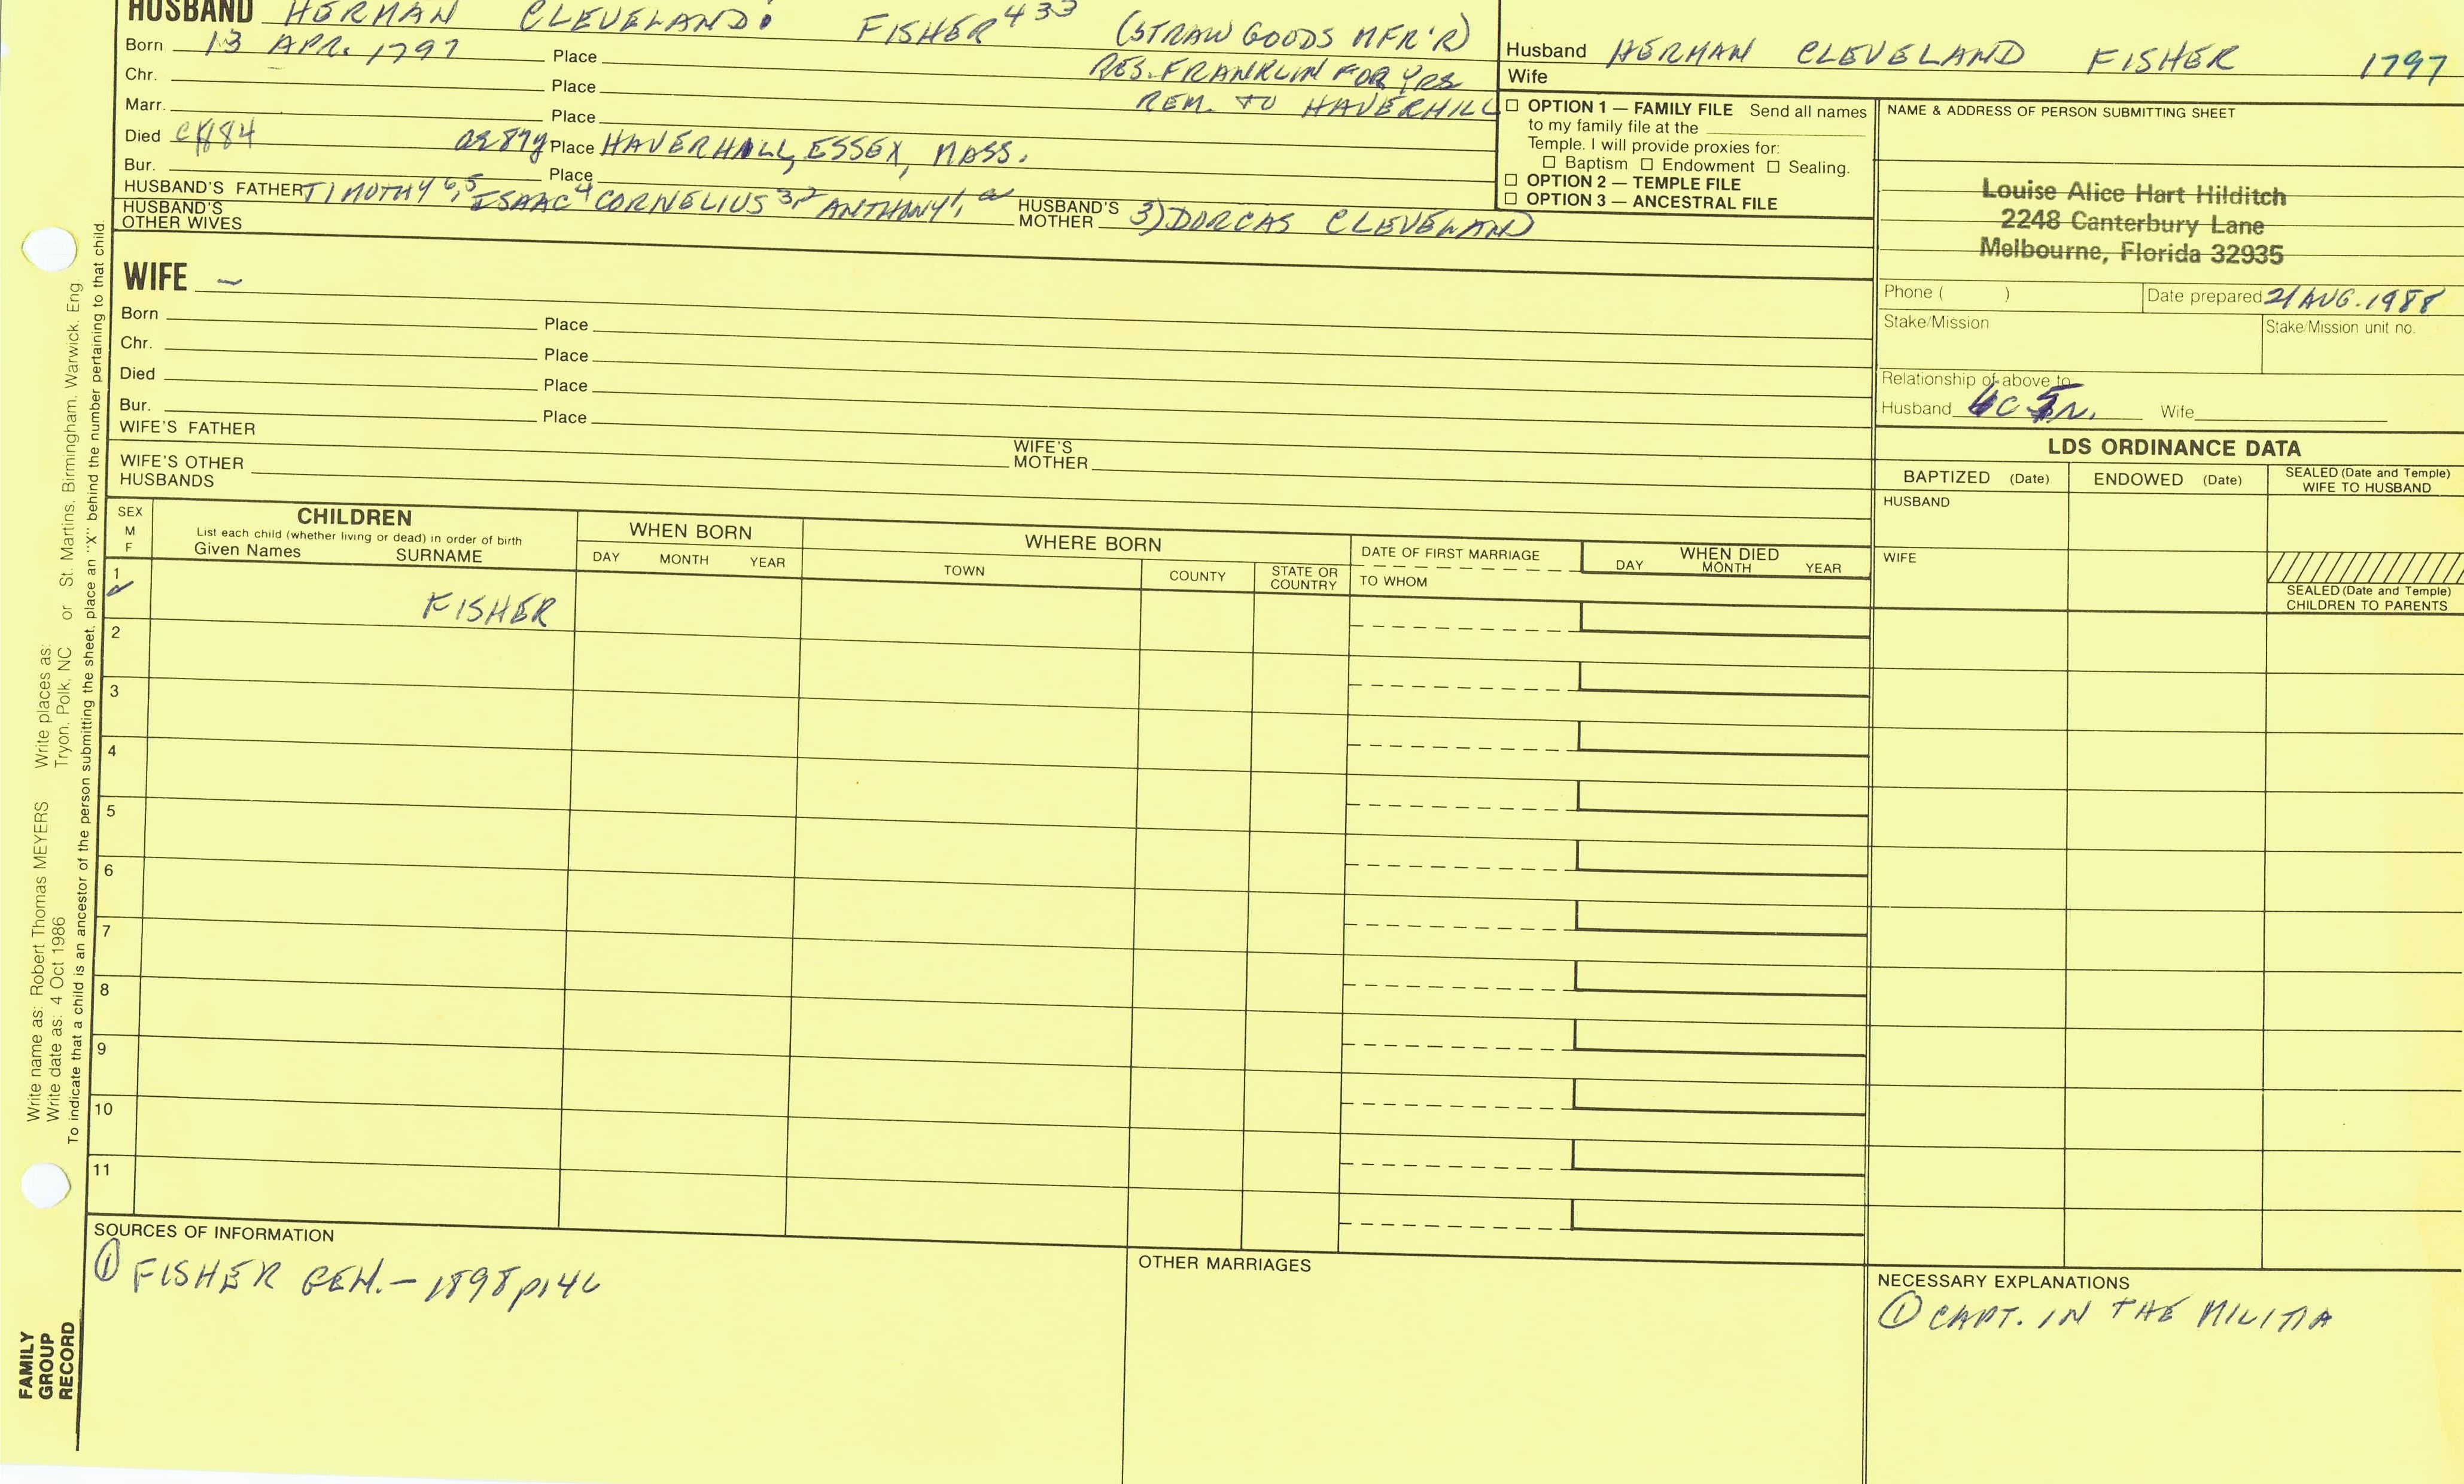 HUSBAND HERMAN CLEVELAND: FISHER 433 (STRAW GOODS MFR'R)
Born 13 APR. 1797 Place RES. FRANKLIN FOR YRS
Chr. Place REM. TO HAVERHILL
Marr. Place
Died 1884 ae 87y Place HAVERHILL, ESSEX, MASS.
Bur. Place
HUSBAND'S FATHER TIMOTHY 6,5 ISAAC 4 CORNELIUS 3,2 ANTHONY 1,
HUSBAND'S MOTHER 3) DORCAS CLEVELAND
HUSBAND'S OTHER WIVES
Husband HERMAN CLEVELAND FISHER 1797
Wife
☐ OPTION 1 — FAMILY FILE Send all names
to my family file at the
Temple. I will provide proxies for:
☐ Baptism ☐ Endowment ☐ Sealing.
☐ OPTION 2 — TEMPLE FILE
☐ OPTION 3 — ANCESTRAL FILE
NAME & ADDRESS OF PERSON SUBMITTING SHEET
Louise Alice Hart Hilditch
2248 Canterbury Lane
Melbourne, Florida 32935
Phone ( ) Date prepared 21 AUG. 1988
Stake/Mission Stake/Mission unit no.
Relationship of above to
Husband Wife
WIFE –
Born Place
Chr. Place
Died Place
Bur. Place
WIFE'S FATHER
WIFE'S MOTHER
WIFE'S OTHER HUSBANDS
LDS ORDINANCE DATA
BAPTIZED (Date) ENDOWED (Date) SEALED (Date and Temple) WIFE TO HUSBAND
HUSBAND
WIFE
SEALED (Date and Temple)
CHILDREN TO PARENTS
SEX
M
F
CHILDREN
List each child (whether living or dead) in order of birth
Given Names SURNAME
WHEN BORN
DAY MONTH YEAR
WHERE BORN
TOWN COUNTY STATE OR COUNTRY
DATE OF FIRST MARRIAGE
TO WHOM
WHEN DIED
DAY MONTH YEAR
1 ✓ FISHER
2
3
4
5
6
7
8
9
10
11
SOURCES OF INFORMATION
① FISHER GEN. – 1898 p146
OTHER MARRIAGES
NECESSARY EXPLANATIONS
① CAPT. IN THE MILITIA
Write name as: Robert Thomas MEYERS Write places as:
Write date as: 4 Oct 1986 Tryon, Polk, NC or St. Martins, Birmingham, Warwick, Eng
To indicate that a child is an ancestor of the person submitting the sheet, place an "X" behind the number pertaining to that child.
FAMILY
GROUP
RECORD